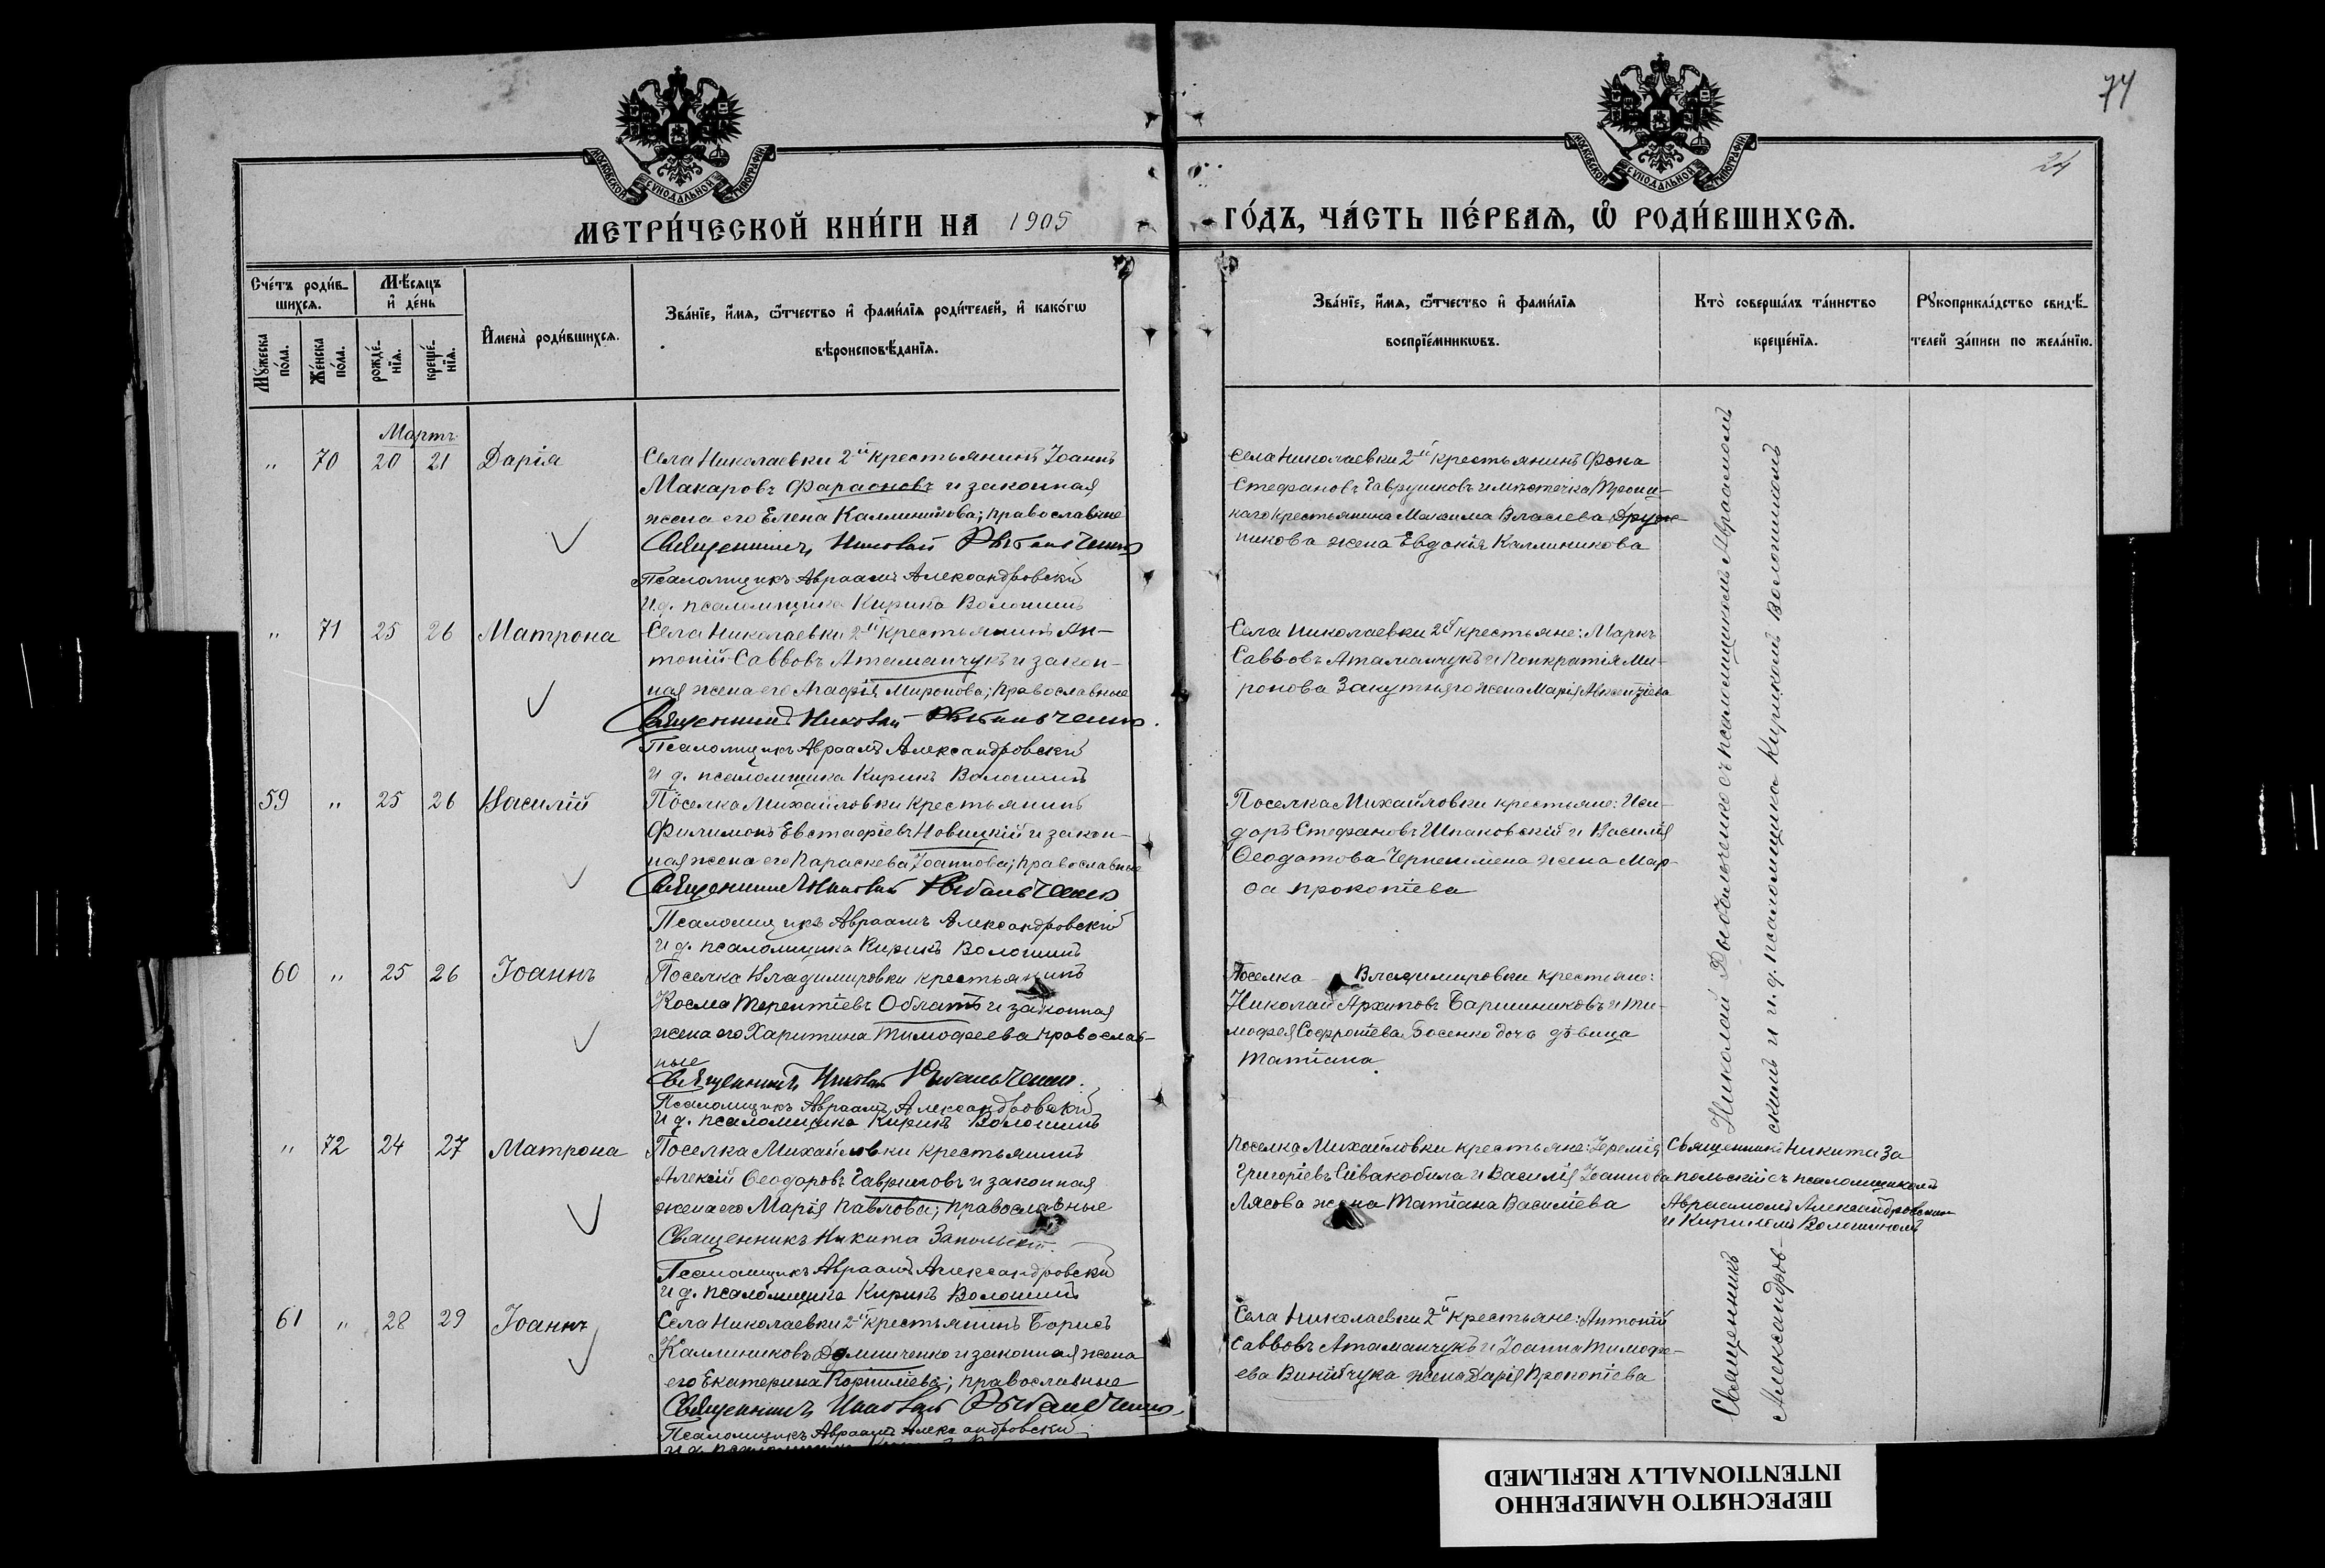 74
24
МОСКОВСКОЙ СѴНОДАЛЬНОЙ ТИПОГРАФІИ
МОСКОВСКОЙ СѴНОДАЛЬНОЙ ТИПОГРАФІИ
МЕТРИ́ЧЕСКОЙ КНИ́ГИ НА 1905
ГО́ДЪ, ЧА́СТЬ ПЕ́РВАѦ, Ѽ РОДИ́ВШИХСѦ.
Сче́тъ роди́в-
шихсѧ.
Мꙋ́жеска по́ла.
Же́нска по́ла.
Мѣ́сяцъ
и҆ де́нь
рожде́-нїѧ.
креще́-нїѧ.
И҆мена̀ роди́вшихсѧ.
Зва́нїе, и҆́мѧ, ѻ҆́тчество и҆ фами́лїѧ роди́телей, и҆ како́гѡ
вѣроисповѣ́данїѧ.
Зва́нїе, и҆́мѧ, ѻ҆́тчество и҆ фами́лїѧ
воспрїе́мникѡвъ.
Кто̀ соверша́лъ та́инство
креще́нїѧ.
Рꙋкоприкла́дство свидѣ́-
телей за́писи по жела́нїю.
Мартъ
" 70 20 21 Дарія
Села Николаевки 2й крестьянинъ Іоаннъ
Макаровъ Фараоновъ и законная
жена его Елена Каллиникова; православные
Священникъ Николай Рыбальченко
Псаломщикъ Авраамъ Александровскій
И.д. псаломщика Кирикъ Волошинъ
Села Николаевки 2й крестьянинъ Фока
Стефановъ Гаврушковъ и мѣстечка
каго крестьянина Максима Власіева Друж-
никова жена Евдокія Каллиникова
" 71 25 26 Матрона
Села Николаевки 2й крестьянинъ Ан-
тоній Саввовъ Атаманчукъ и закон-
ная жена его Агафія Миронова; православные
Священникъ Николай Рыбальченко.
Псаломщикъ Авраамъ Александровскій
И д. псаломщика Кирикъ Волошинъ
Села Николаевки 2й крестьяне: Маркъ
Саввовъ Атаманчукъ и Панкратія Ми-
ронова Закутняго жена Марія Авксентіева
59 " 25 26 Василій
Поселка Михайловки крестьянинъ
Филимонъ Евстафіевъ Новицкій и закон-
ная жена его Параскева Іоаннова; православные
Священникъ Николай Рыбальченко
Псаломщикъ Авраамъ Александровскій
И д. псаломщика Кирикъ Волошинъ
Поселка Михайловки крестьяне: Иси-
доръ Стефановъ Шпаковскій и Василія
Ѳеодотова жена Мар-
ѳа Прокопіева
60 " 25 26 Іоаннъ
Поселка Владимировки крестьянинъ
Косма Терентіевъ и законная
жена его Харитина Тимофеева православ-
ные
Священникъ Николай Рыбальченко.
Псаломщикъ Авраамъ Александровскій
И д. псаломщика Кирикъ Волошинъ
Поселка Владимировки крестьяне:
Николай Архиповъ Баришниковъ и Ти-
мофея Софроніева Босенко дочь дѣвица
Татіана.
" 72 24 27 Матрона
Поселка Михайловки крестьянинъ
Алексій Ѳеодоровъ Гавриловъ и законная
жена его Марія Павлова; православные
Священникъ Никита Запольскій.
Псаломщикъ Авраамъ Александровскій
И д. псаломщика Кирикъ Волошинъ
Поселка Михайловки крестьяне: Іеремія
Григоріевъ Сивакобила и Василія Іоаннова
Лясова жена Татіана Василіева
Священникъ Никита За
польскій съ псаломщикомъ
Авраамомъ Александровским
и Кирикомъ Волошиномъ
61 " 28 29 Іоаннъ
Села Николаевки 2й крестьянинъ Борисъ
Каллиниковъ и законная жена
его Екатерина Корниліева; православные
Священникъ Николай Рыбальченко.
Псаломщикъ Авраамъ Александровскій
Села Николаевки 2й крестьяне: Антоній
Саввовъ Атаманчукъ и Іоанна Тимофе-
ева Винничука жена Дарія Прокопіева
Священникъ Николай Рыбальченко съ псаломщикомъ Авраамомъ
Александров-скимъ и и.д. псаломщика Кирикомъ Волошиномъ
ПЕРЕСНЯТО НАМЕРЕННО
INTENTIONALLY REFILMED